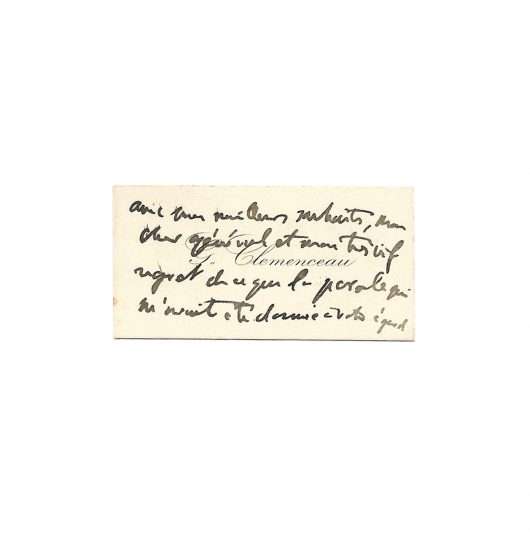 avec mes meilleurs souhaits, mon
cher général et mon très vif
G. Clemenceau
regret de ce que la parole qui
m'avait été donnée à votre égard